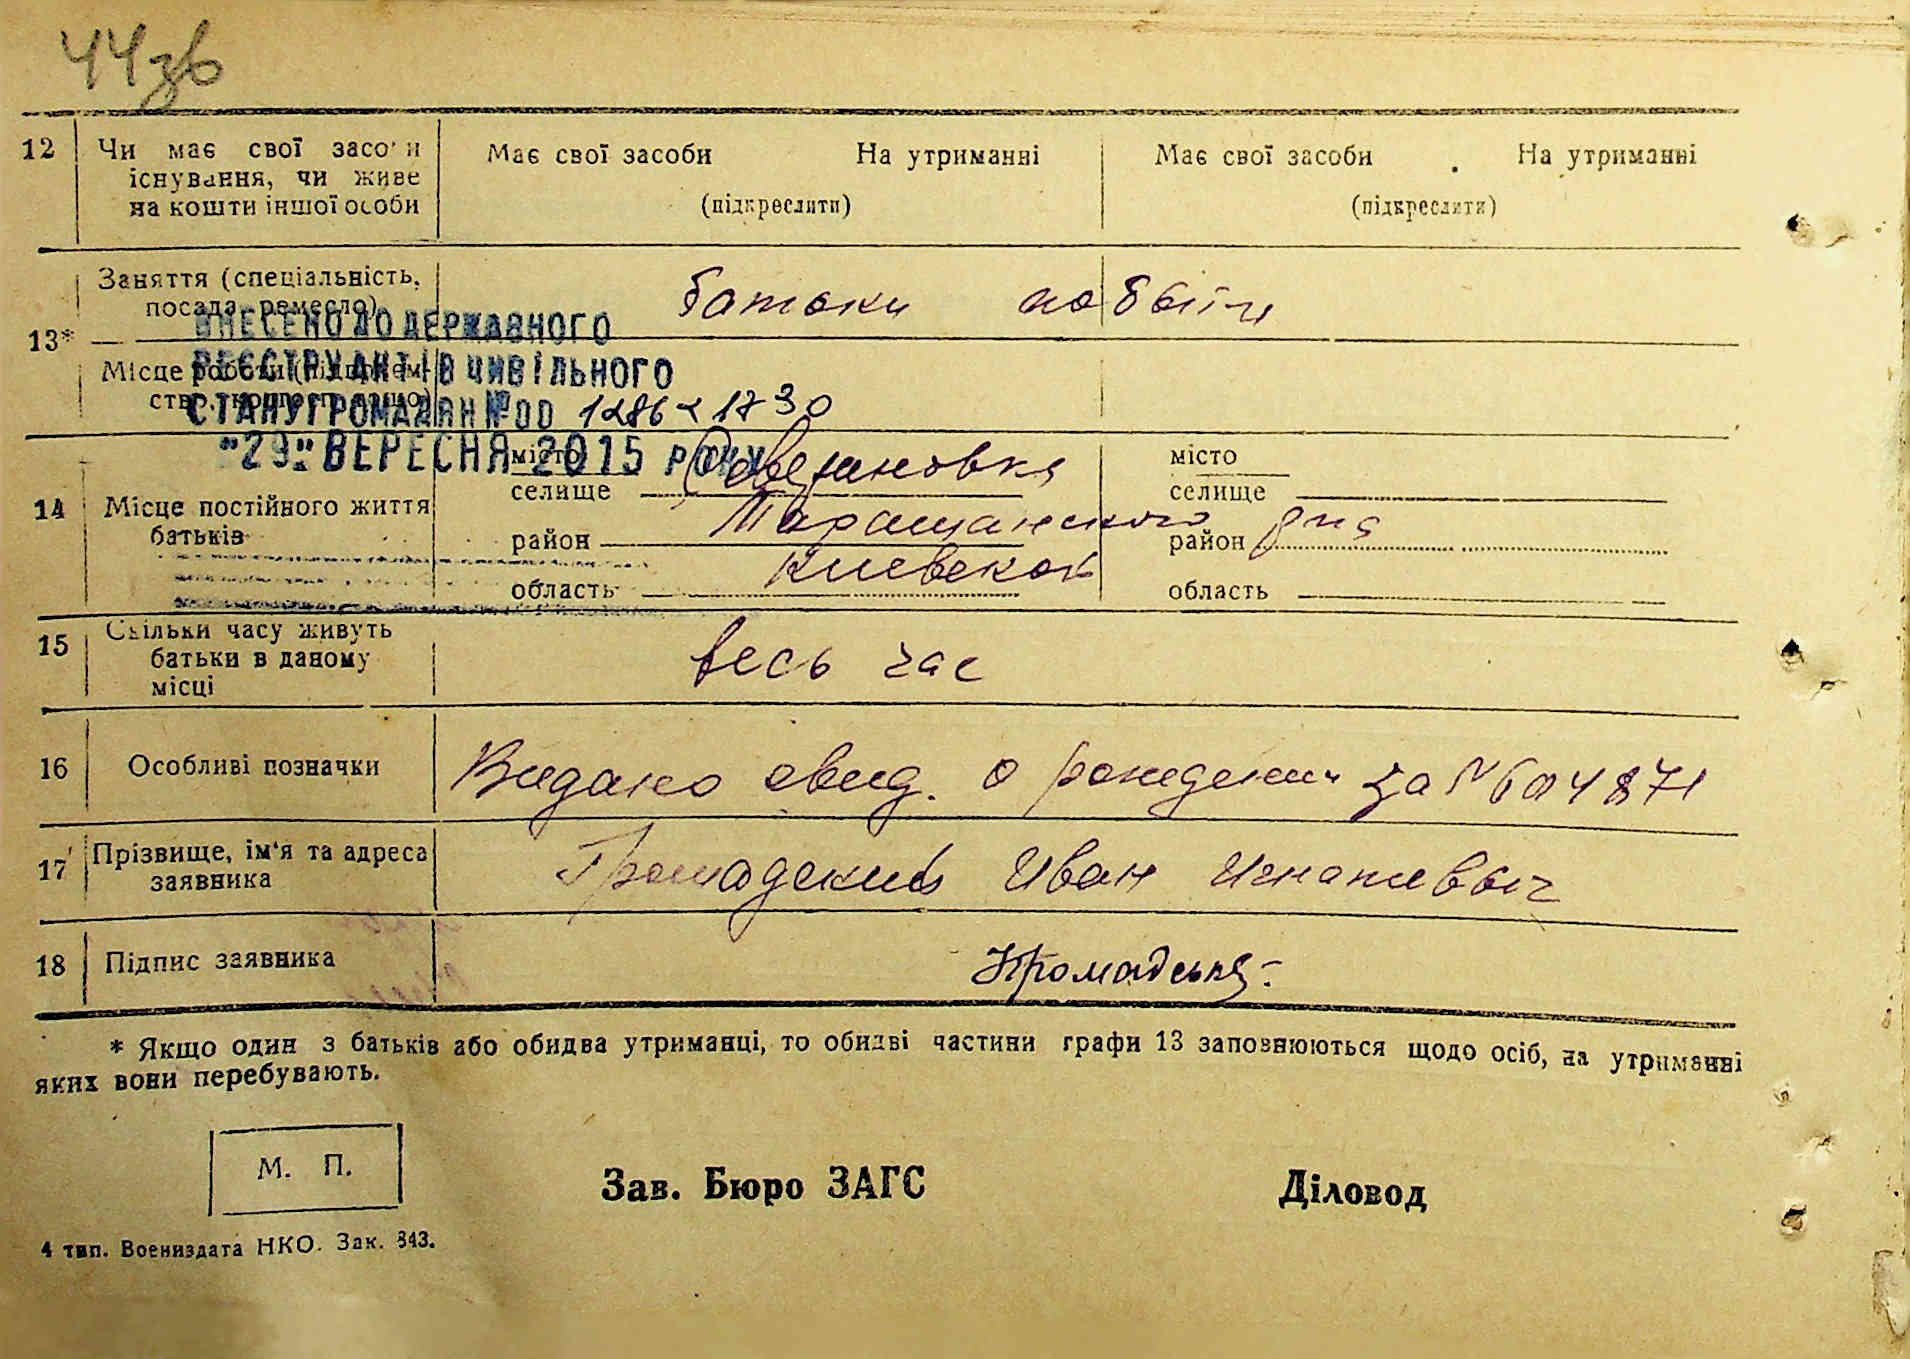 44зв
12 Чи має свої засоби Має свої засоби На утриманні Має свої засоби На утриманні
існування, чи живе
на кошти іншої особи (підкреслити) (підкреслити)
Заняття (спеціальність,
посада, ремесло) батьки побыти
13*
ВНЕСЕНО ДО ДЕРЖАВНОГО
Місце роботи (підприєм-
РЕЄСТРУ АКТІВ ЦИВІЛЬНОГО
ство, тощо)
СТАНУ ГРОМАДЯН №00 1286 1730
"29" ВЕРЕСНЯ 2015 року
місто місто
селище селище
14 Місце постійного життя
батьків
Таращанского р-на
район район
Киевской
область область
15 Скільки часу живуть
батьки в даному весь час
місці
16 Особливі позначки Видано свид. о рождении за №
17 Прізвище, ім'я та адреса
заявника Громадский Иван Игнатиевыч
18 Підпис заявника
* Якщо один з батьків або обидва утриманці, то обидві частини графи 13 заповнюються щодо осіб, на утриманні
яких вони перебувають.
М. П.
Зав. Бюро ЗАГС Діловод
4 тип. Воениздата НКО. Зак. 843.